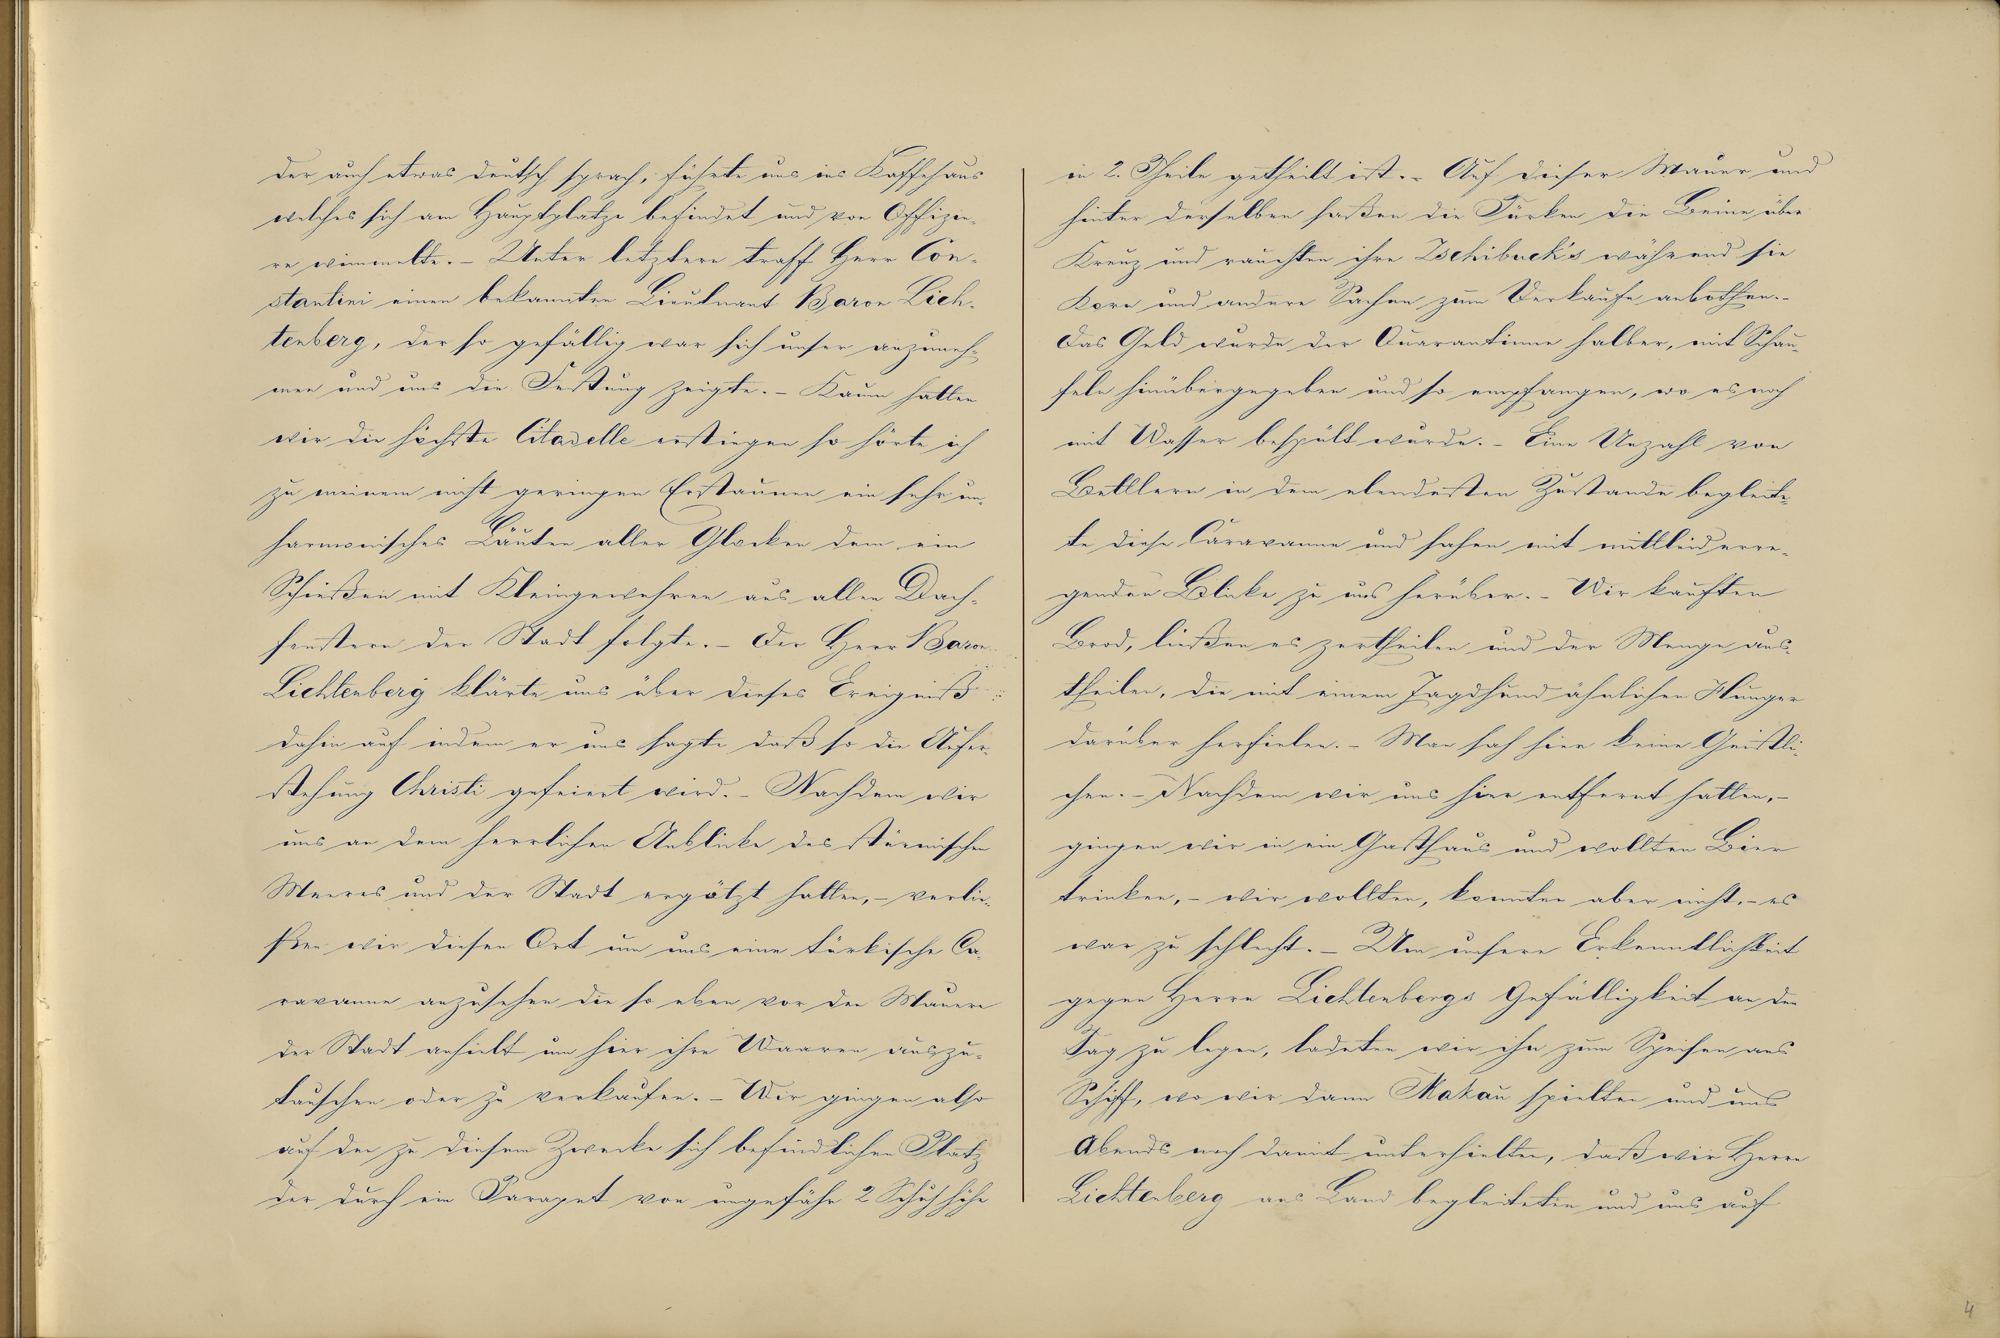 der auch etwas deutsch sprach, führte uns ins Kaffehaus
welches sich am Hauptplatze befindet und von Offizie-
re wimmelte. – Unter letztern traff Herr Con-
stantini einen bekannten Lieutnant Baron Lich-
tenberg, der so gefällig war sich unser anzuneh-
men und uns die Festung zeigte. – Kaum hatten
wir die höchste Citadelle erstiegen so hörte ich
zu meinem nicht geringen Erstaunen ein sehr un-
harmonisches Läuten aller Glocken dem ein
Schießen mit Kleingewehren aus allen Dach-
fenstern der Stadt folgte. – Der Herr Baron
Lichtenberg klärte uns über dieses Ereigniß
dahin auf indem er uns sagte daß so die Aufer-
stehung Christi gefeiert wird. – Nachdem wir
uns an dem herrlichen Anblicke des stürmischen
Meeres und der Stadt ergötzt hatten, – verlie-
ßen wir diesen Ort um uns eine türkische Ca-
ravanne anzusehen die so eben vor den Mauern
der Stadt anhielt um hier ihre Waaren auszu-
tauschen oder zu verkaufen. – Wir gingen also
auf den zu diesem Zwecke sich befindlichen Platz
der durch ein Parapet von ungefähr 2 Schuh höhe
in 2. Theile getheilt ist. – Auf dieser Mauer und
hinter derselben saßen die Türken die Beine über
Kreuz und rauchten ihre Tschibuck's während sie
Korn und andere Sachen zum Verkaufe anbothen. –
Das Geld wurde der Quarantinne halber, mit Schau-
feln hinübergegeben und so empfangen, wo es noch
mit Wasser bespült wurde. – Eine Unzahl von
Bettlern in dem elendesten Zustande begleite-
te diese Caravanne und sahen mit mittleiderre-
genden Blicke zu uns herüber. – Wir kauften
Brod, ließen es zertheilen und der Menge aus-
theilen, die mit einem Jagdhund ähnlichen Hunger
darüber herfielen. – Man sah hier keine Geistli-
chen. – Nachdem wir uns hier entfernt hatten, –
gingen wir in ein Gasthaus und wollten Bier
trinken, – wir wollten, konnten aber nicht, – es
war zu schlecht. – Um unsere Erkenntlichkeit
gegen Herrn Lichtenbergs Gefälligkeit an den
Tag zu legen, ladeten wir ihn zum Speisen ans
Schiff, wo wir dann Makau spielten und uns
Abends noch damit unterhielten, daß wir Herrn
Lichtenberg ans Land begleiteten und uns auf
4